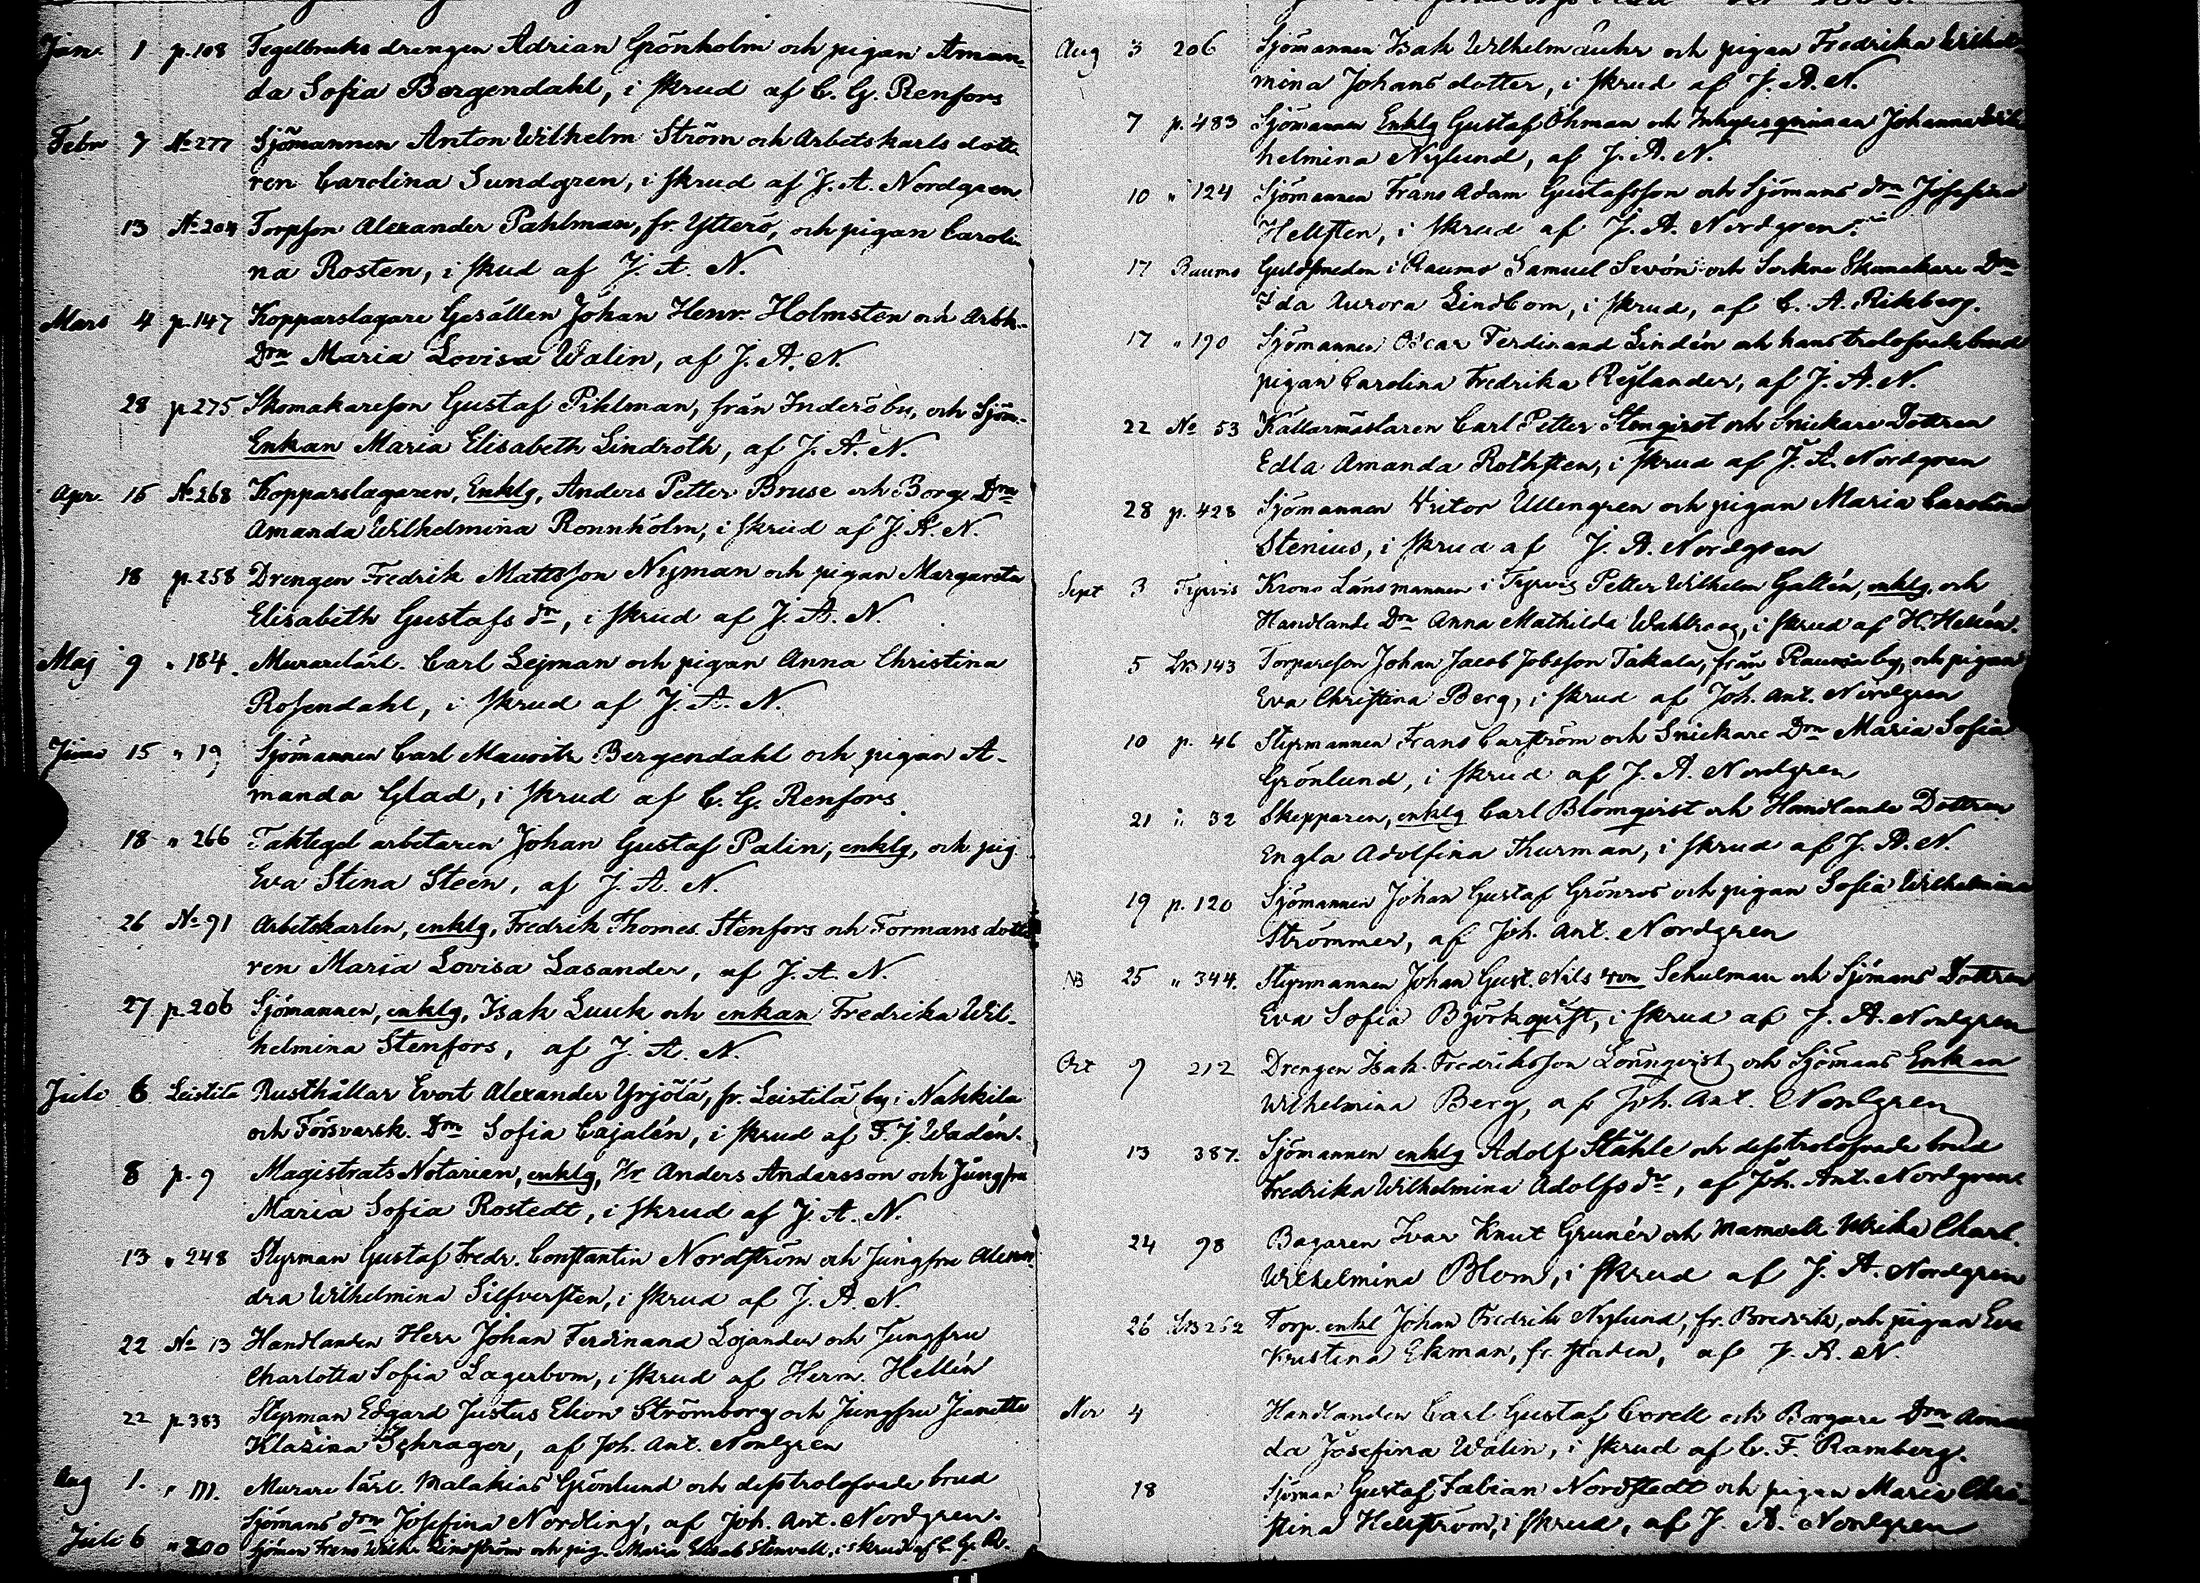 Jan. 1 p. 108 Tegelbruks drengen Adrian Grönholm och pigan Aman-
da Sofia Bergendahl, i skrud af C. G. Renfors
Febr 7 No 277 Sjömannen Anton Wilhelm Ström och Arbetskarls dott-
ren Carolina Sundgren, i skrud af J. A. Nordgren
13 No 204 Torpson Alexander Pahlman, fr. Ytterö, och pigan Caroli-
na Rosten, i skud af J. A. N.
Mars 4 p. 147 Kopparslagare Gesällen Johan Henr. Holmsten och Arbk.
Drn Maria Lovisa Walin, af J. A. N.
28 p 275 Skomakareson Gustaf Pihlman, från Inderöby, och Sjöm.
Enkan Maria Elisabeth Lindroth, af J. A. N.
Apr. 16 No 268 Kopparslagaren, Enklg, Anders Petter Bruse och Borg. Drn
Amanda Wilhelmina Rönnholm, i skrud af J. A. N.
18 p. 258 Drengen Fredrik Mattsson Nyman och pigan Margareta
Elisabeth Gustafs dr, i skrud af J. A. N.
Maj 9 " 184. Murarelärl. Carl Lejman och pigan Anna Christina
Rosendahl, i skrud af J. A. N.
Juni 15 " 19 Sjömannen Carl Mauritz Bergendahl och pigan A-
manda Glad, i skrud af C. G. Renfors.
18 " 266 Taktegel arbetaren Johan Gustaf Palin, enklg, och pig
Eva Stina Steen, af J. A. N.
26 No 91 Arbetskarlen, enklg, Fredrik Thomes. Stenfors och Formans dott
ren Maria Lovisa Lasander, af J. A. N.
27 p. 206 Sjömannen, enklg, Isak Luuk och enkan Fredrika Wil-
helmina Stenfors, af J. A. N.
Juli 6 Leistila Rusthållar Evert Alexander Yrjölä, fr. Leistilä by i Nakkila
och Försvarsk. Drn Sofia Cajalén, i skrud af F. J. Wadén.
8 p. 9 Magistrats Notarien, enklg, Hr Anders Andersson och Jungfru
Maria Sofia Rostedt, i skrud af J. A. N.
13 " 248 Styrman Gustaf Fredr. Constantin Nordström och Jungfru Alexan
dra Wilhelmina Silfversten, i skrud af J. A. N.
22 No 13 Handlanden Herr Johan Ferdinand Lojander och Jungfru
Charlotta Sofia Lagerbom, i skrud af Herm. Hellén
22 p 383 Styrman Edgard Justus Elion Strömborg och Jungfru Jeanette
Klasina Schrager, af Joh. Ant. Nordgren
Aug 1. " 111. Murare lärl. Malakias Grönlund och dess trolofvade brud
Sjömans drn Josefina Nordling, af Joh. Ant. Nordgren.
Juli 6 " 200 Sjöman Frans Wilh. Lindström och pig. Maria Elisab. Stenvall, i skrud af C. G. R.
Aug 3 206 Sjömannen Isak Wilhelm Luhr och pigan Fredrika Wilhel-
mina Johansdotter, i skrud af J. A. N.
7 p. 483 Sjömannen Enklg Gustaf Öhman och Inhyses qvinnan Johanna Wil
helmina Nylund, af J. A. N.
10 " 124 Sjömannen Frans Adam Gustafsson och Sjömans drn Josefina
Hellsten, i skrud af J. A. Nordgren.
17 Raumo Guldsmeden i Raumo Samuel Sevón och Sockne Skomakare Drn
Ida Aurora Lindbom, i skrud, af C. A. Rikberg.
17 " 190 Sjömannen Oscar Ferdinand Lindén och hans trolofvade brud
pigan Carolina Fredrika Reylander, af J. A. N.
22 No 53 Källarmästaren Carl Petter Stenqvist och Snickare Dottren
Edla Amanda Rothsten, i skrud af J. A. Nordgren
28 p. 428 Sjömannen Viktor Ullengren och pigan Maria Carolina
Stenius, i skrud af J. A. Nordgren
Sept 3 Tyrvis Krono Länsmannen i Tyrvis Petter Wilhelm Gallén, enklg, och
Handlande Drn Anna Mathilda Wahlroos, i skrud af H. Hellén.
5 LB 143 Torpareson Johan Jacob Jobsson Takala, från Raumia by, och pigan
Eva Christina Berg, i skrud af Joh. Ant. Nordgren
10 p. 46 Styrmannen Frans Carström och Snickare Drn Maria Sofia
Grönlund, i skrud af J. A. Nordgren
21 " 32 Skepparen, enklg Carl Blomqvist och Handlande Dottren
Engla Adolfina Thurman, i skrud af J. A. N.
19 p. 120 Sjömannen Johan Gustaf Grönros och pigan Sofia Wilhelmina
Strömmer, af Joh. Ant. Nordgren
NB 25 " 344. Styrmannen Johan Gust. Nils von Schulman och Sjömans Dottren
Eva Sofia Björkqvist, i skrud af J. A. Nordgren
Oct 9 212 Drengen Isak Fredriksson Lönnqvist och Sjömans Enkan
Wilhelmina Berg, af Joh. Ant. Nordgren
13 387. Sjömannen enklg Adolf Ståhle och dess trolofvade brud
Fredrika Wilhelmina Adolfs dr, af Joh. Ant. Nordgren
24 98 Bagaren Ivar Knut Grunér och Mamsell Ulrika Charl.
Wilhelmina Blom, i skrud af J. A. Nordgren
26 LB 252 Torp. enkl Johan Fredrik Nylund, fr. Bredvik, och pigan Eva
Kristina Ekman, fr. staden, af J. A. N.
Nov 4 Handlanden Carl Gustaf Corell och Borgare Drn Aman
da Josefina Walin, i skrud af C. F. Ramberg.
18 Sjöman Gustaf Fabian Nordstedt och pigan Maria Chri-
stina Hellström, i skrud, af J. A. Nordgren